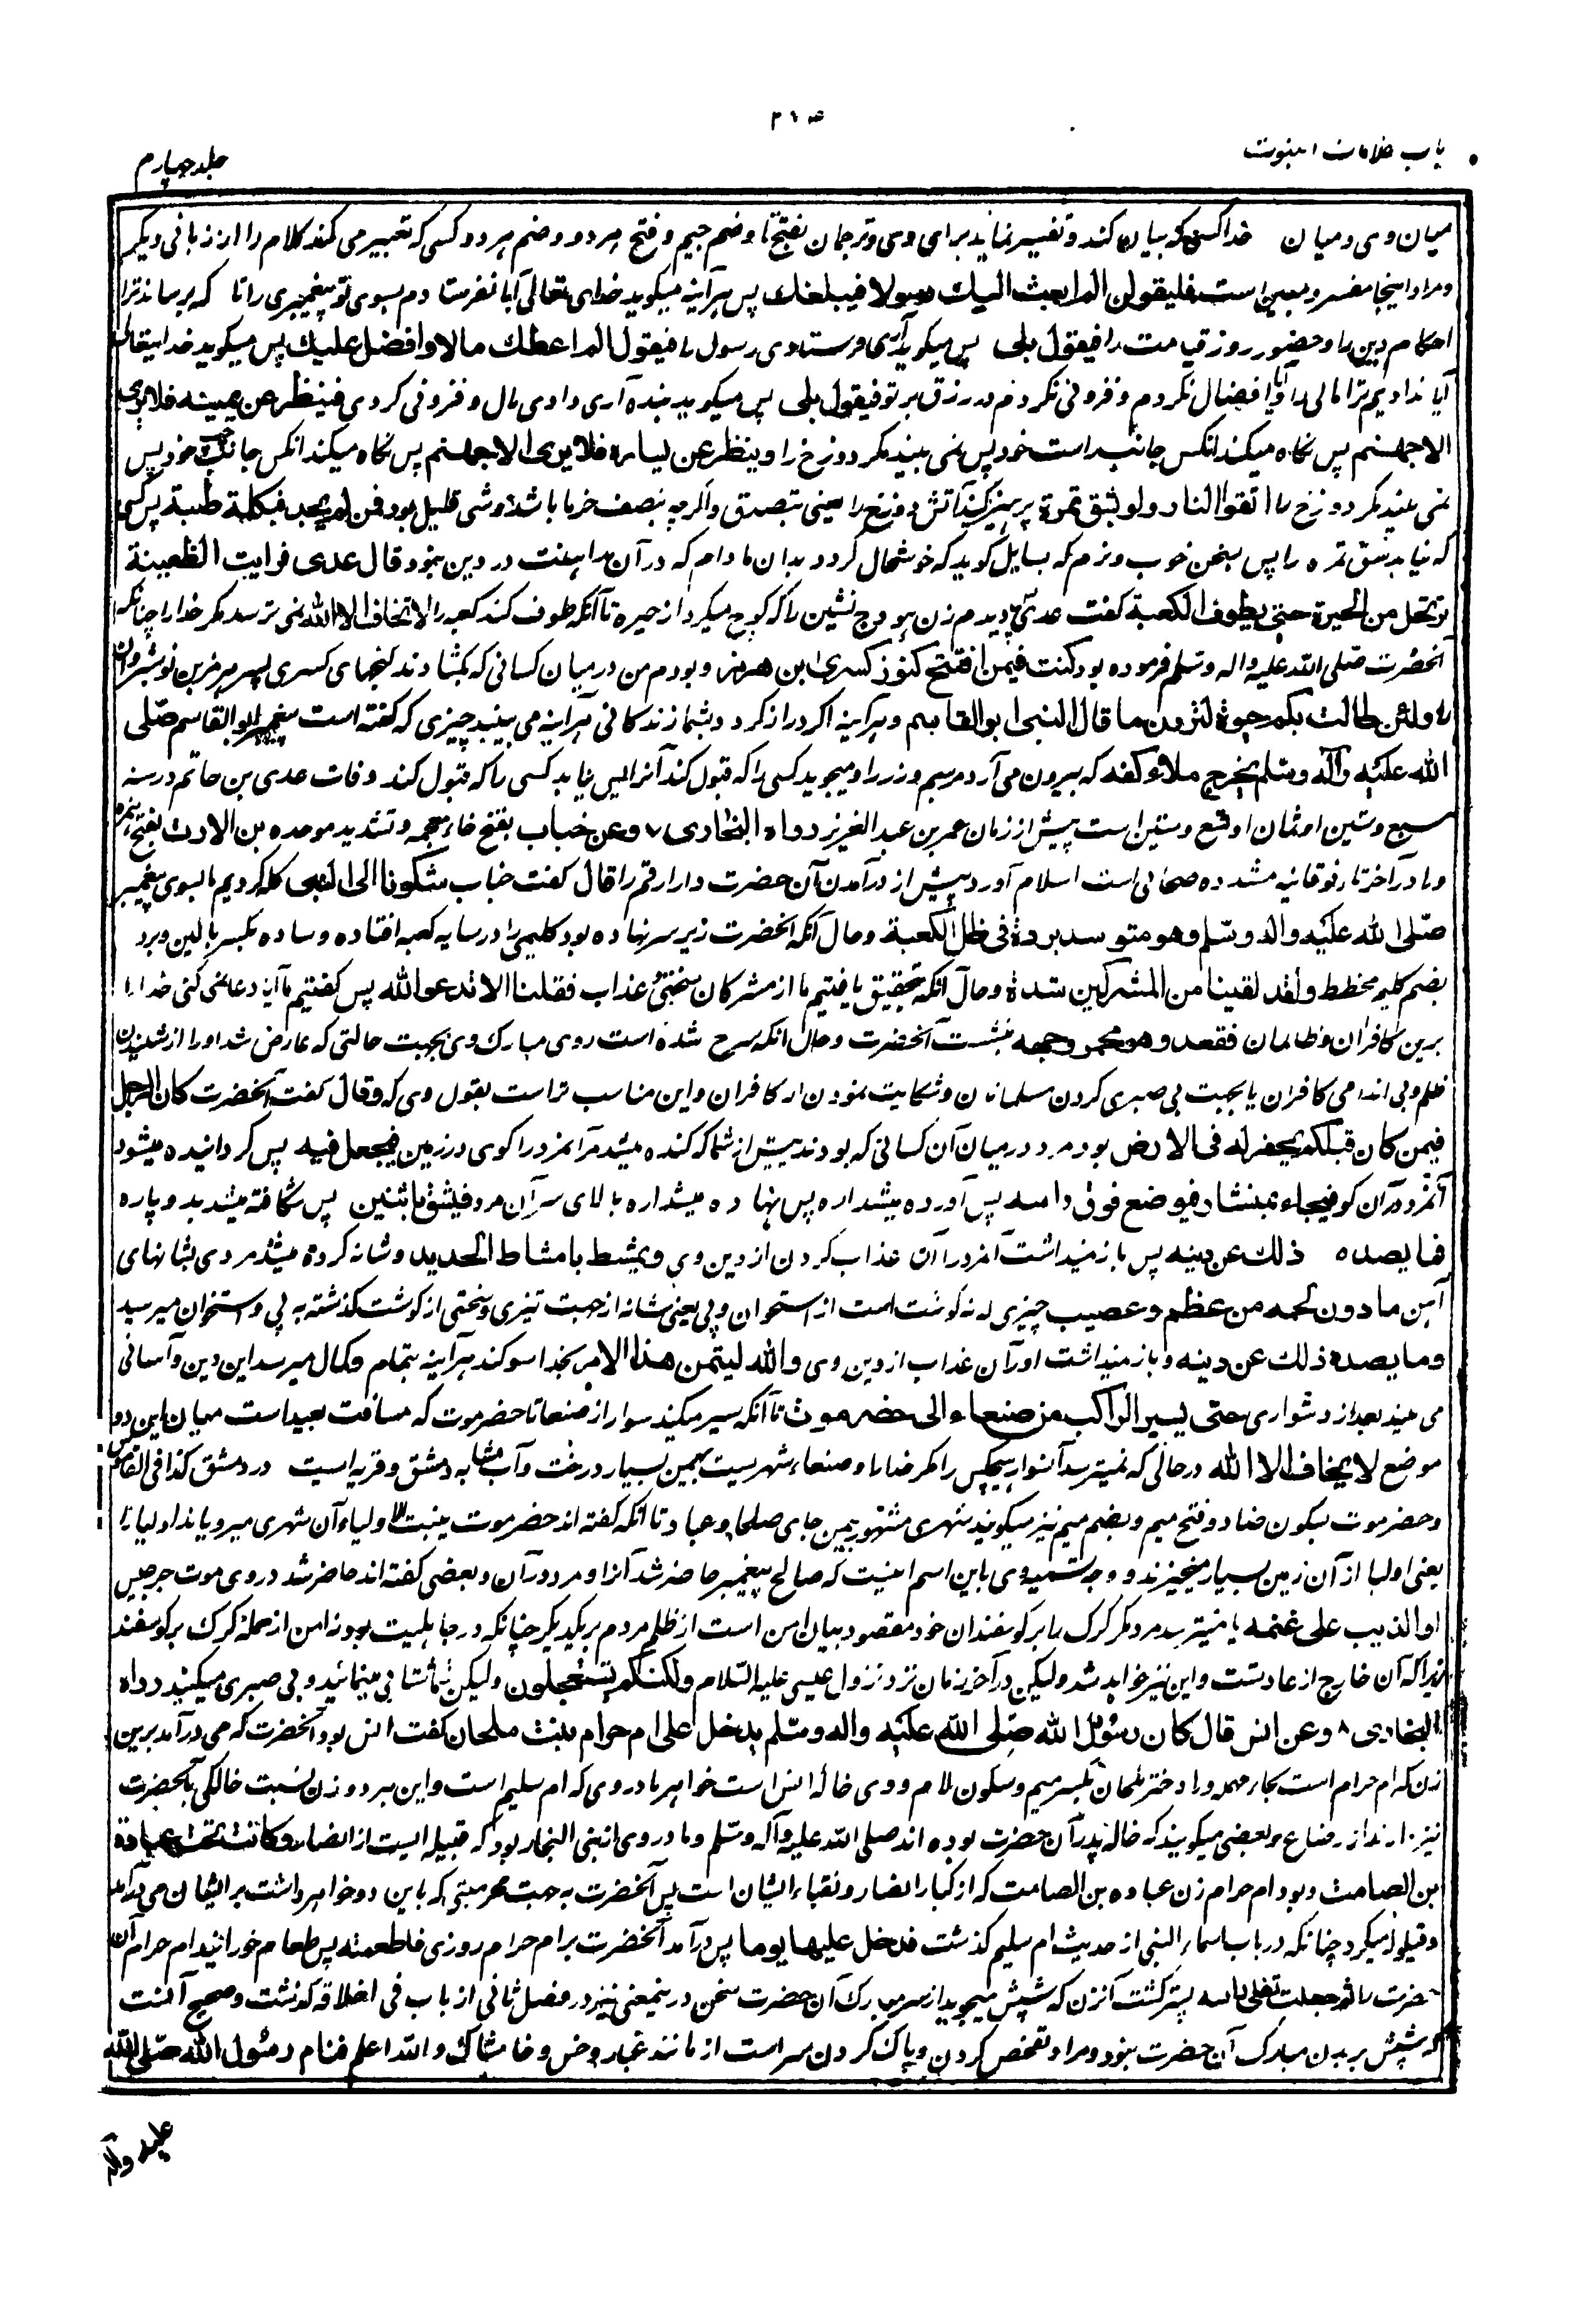 باب علامات النبوت
جلد چهارم
میان وی و میان خدا کسی که بیان کند و تفسیر نماید برای وی و ترجمان بفتح تا و ضم جیم و فتح هر دو و ضم هر دو کسی که تعبیر می کند کلام را از زبانی دیگر
و مراد اینجا مفسر و مبین است فلیقولن الم ابعث الیک رسولا فیبلغک پس هر آینه میکوید خدای تعالی آیا نفرستادم بسوی تو پیغمبری را تا که برساند ترا
احکام دین را و حضور روز قیامت را فیقول بلی پس میکوید آری فرستادی رسول را فیقول الم اعطک مالا و افضل علیک پس میکوید خدایتعالی
آیا ندادیم ترا مالی را و آیا افضال نکردم و فزونی نکردم در رزق بر تو فیقول بلی پس میکوید بنده آری دادی مال و فزونی کردی فینظر عن یمینه فلا یری
الا جهنم پس نکاه میکند انکس جانب راست خود پس نمی بیند مکر دوزخ را و ینظر عن یساره فلا یری الا جهنم پس نکاه میکند انکس جانب چپ خود پس
نمی بیند مکر دوزخ را اتقوا النار ولو بشق تمرة پرهیز کنید آتش دوزخ را یعنی بتصدق و اکرچه بنصف خرما باشد و شی قلیل بود فمن لم یجد فبکلمة طیبة پس کسی
که نیابد شق تمره را پس بسخن خوب و نرم که بسایل کوید که خوشحال کردد بدان مادام که در آن مداهنت در دین نبود قال عدی فرایت الظعینة
ترتحل من الحیرة حتی یطوف الکعبة کفت عدی پس دیدم زن هودج نشین را که کوچ میکرد از حیره تا آنکه طوف کند کعبه را لا تخاف الا الله نمی ترسد مکر خدا را چنانکه
آنحضرت صلی الله علیه واله وسلم فرموده بود و کنت فیمن افتتح کنوز کسری ابن هرمز و بودم من در میان کسانی که بکشادند کنجهای کسری پسر هرمز بن نوشیروان
را ولئن طالت بکم حیوة لترون ما قال النبی ابوالقاسم و هر آینه اکر دراز کردد بشما زندکانی هر آینه می بینید چیزی که کفته است پیغمبر ابوالقاسم صلی
الله علیه وآله وسلم یخرج ملاء کفه که بیرون می آرد مرد سیم و زر را و میجوید کسی را که قبول کند آنرا پس نیابد کسی را که قبول کند وفات عدی بن حاتم در سنه
سبع وستین او ثمان او تسع وستین است پیش از زمان عمر بن عبد العزیز رواه البخاری ۷ وعن خباب بفتح خاء معجمه و تشدید موحده بن الارت بفتح همزه
و را در آخر تا فوقانیه مشدده صحابی است اسلام آورد پیش از درآمدن آن حضرت دار ارقم را قال کفت خباب شکونا الی النبی کله کردیم ما بسوی پیغمبر
صلی الله علیه واله وسلم وهو متوسد بردة فی ظل الکعبة و حال آنکه آنحضرت زیر سر نهاده بود کلیمی را در سایه کعبه افتاده و ساده بکسر بالین و برد
بضم کلیم مخطط ولقد لقینا من المشرکین شدة و حال آنکه بتحقیق یافتیم ما از مشرکان سختی عذاب فقلنا الا تدعو الله پس کفتیم ما آیا دعا نمی کنی خدا را
برین کافران و ظالمان فقعد وهو محمر وجهه بنشست آنحضرت و حال انکه سرخ شده است روی مبارک وی بجهت حالتی که عارض شد او را از شنیدن
ظلم و بی اندامی کافران یا بجهت بی صبری کردن مسلمانان و شکایت نمودن از کافران و این مناسب تر است بقول وی که و قال کفت آنحضرت کان الرجل
فیمن کان قبلکم یحفر له فی الارض بود مرد در میان آن کسانی که بودند پیش از شما که کنده میشد مر آنمرد را کوی در زمین فیجعل فیه پس کردانیده میشود
آنمرد در آن کو فیجاء بمنشار فیوضع فوق راسه پس آورده میشد اره پس نهاده میشد اره بالای سر آن مرد فیشق باثنین پس شکافته میشد بدو پاره
فما یصده ذلک عن دینه پس باز نمیداشت آنمرد را آن عذاب کردن از دین وی ویمشط بامشاط الحدید و شانه کرده میشد مردی بشانهای
آهن ما دون لحمه من عظم وعصب چیزی که نه کوشت است از استخوان و پی یعنی شانه از جهت تیزی و سختی از کوشت کذشته به پی و استخوان میرسید
وما یصده ذلک عن دینه و باز نمیداشت او را آن عذاب از دین وی والله لیتمن هذا الامر بخدا سوکند هر آینه بتمام و کمال میرسد این دین و آسانی
می بیند بعد از دشواری حتی یسیر الراکب من صنعاء الی حضرموت تا آنکه سیر میکند سوار از صنعا تا حضرموت که مسافت بعید است میان این دو
موضع لا یخاف الا الله در حالی که نمیترسد آنسوار هیچکس را مکر خدا را و صنعاء شهریست بیمن بسیار درخت و آب مشابه دمشق و قریه ایست در دمشق کذا فی القاموس
و حضرموت بسکون ضاد و فتح میم و بضم میم نیز میکویند شهری مشهور بیمن جای صلحا و عباد تا انکه کفته اند حضرموت ینبت الاولیاء آن شهری میرویاند اولیا را
یعنی اولیا از آن زمین بسیار میخیزند و وجه تسمیه وی باین اسم اینست که صالح پیغمبر حاضر شد آنرا و مرد در آن و بعضی کفته اند حاضر شد در وی موت جرجیس
او الذیب علی غنمه یا نمیترسد مرد مکر کرک را بر کوسفندان خود مقصود بیان امن است از ظلم مردم بر یکدیکر چنانکه در جاهلیت بود نه امن از حمله کرک بر کوسفند
زیرا که آن خارج از عادتست و این نیز خواهد شد ولیکن در آخر زمان نزد نزول عیسی علیه السلام ولکنکم تستعجلون ولیکن شما شتابی مینمائید و بی صبری میکنید رواه
البخاری ۸ وعن انس قال کان رسول الله صلی الله علیه واله وسلم یدخل علی ام حرام بنت ملحان کفت انس بود آنحضرت که می درآمد برین
زن که ام حرام است بحاء مهمله و را دختر ملحان بکسر میم و سکون لام و وی خالۀ انس است خواهر مادر وی که ام سلیم است و این هر دو زن نسبت خالکی بآنحضرت
نیز دارند از رضاع و بعضی میکویند که خاله پدر آن حضرت بوده اند صلی الله علیه وآله وسلم و مادر وی از بنی النجار بود که قبیله ایست از انصار وکانت تحت عبادة
بن الصامت و بود ام حرام زن عباده بن الصامت که از کبار انصار و نقباء ایشان است پس آنحضرت به جهت محرمیتی که باین دو خواهر داشت بر ایشان می درآمد
و قیلوله میکرد چنانکه در باب اسماء النبی از حدیث ام سلیم کذشت فدخل علیها یوما پس درآمد آنحضرت بر ام حرام روزی فاطعمته پس طعام خورانید ام حرام آن
حضرت را ثم جعلت تفلی راسه پستر کشت آنزن که شپش میجوید از سر مبارک آن حضرت سخن درینمعنی نیز در فصل ثانی از باب فی اخلاقه کذشت و صحیح آنست
که شپش بر بدن مبارک آن حضرت نبود و مراد تفحص کردن و پاک کردن سر است از مانند غبار و خس و خاشاک و الله اعلم فنام رسول الله صلی الله
علیه وآله